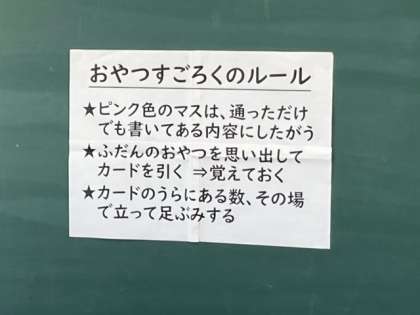 おやつすごろくのルール
★ピンク色のマスは、通っただけ
でも書いてある内容にしたがう
★ふだんのおやつを思い出して
カードを引く ⇒覚えておく
★カードのうらにある数、その場
で立って足ぶみする